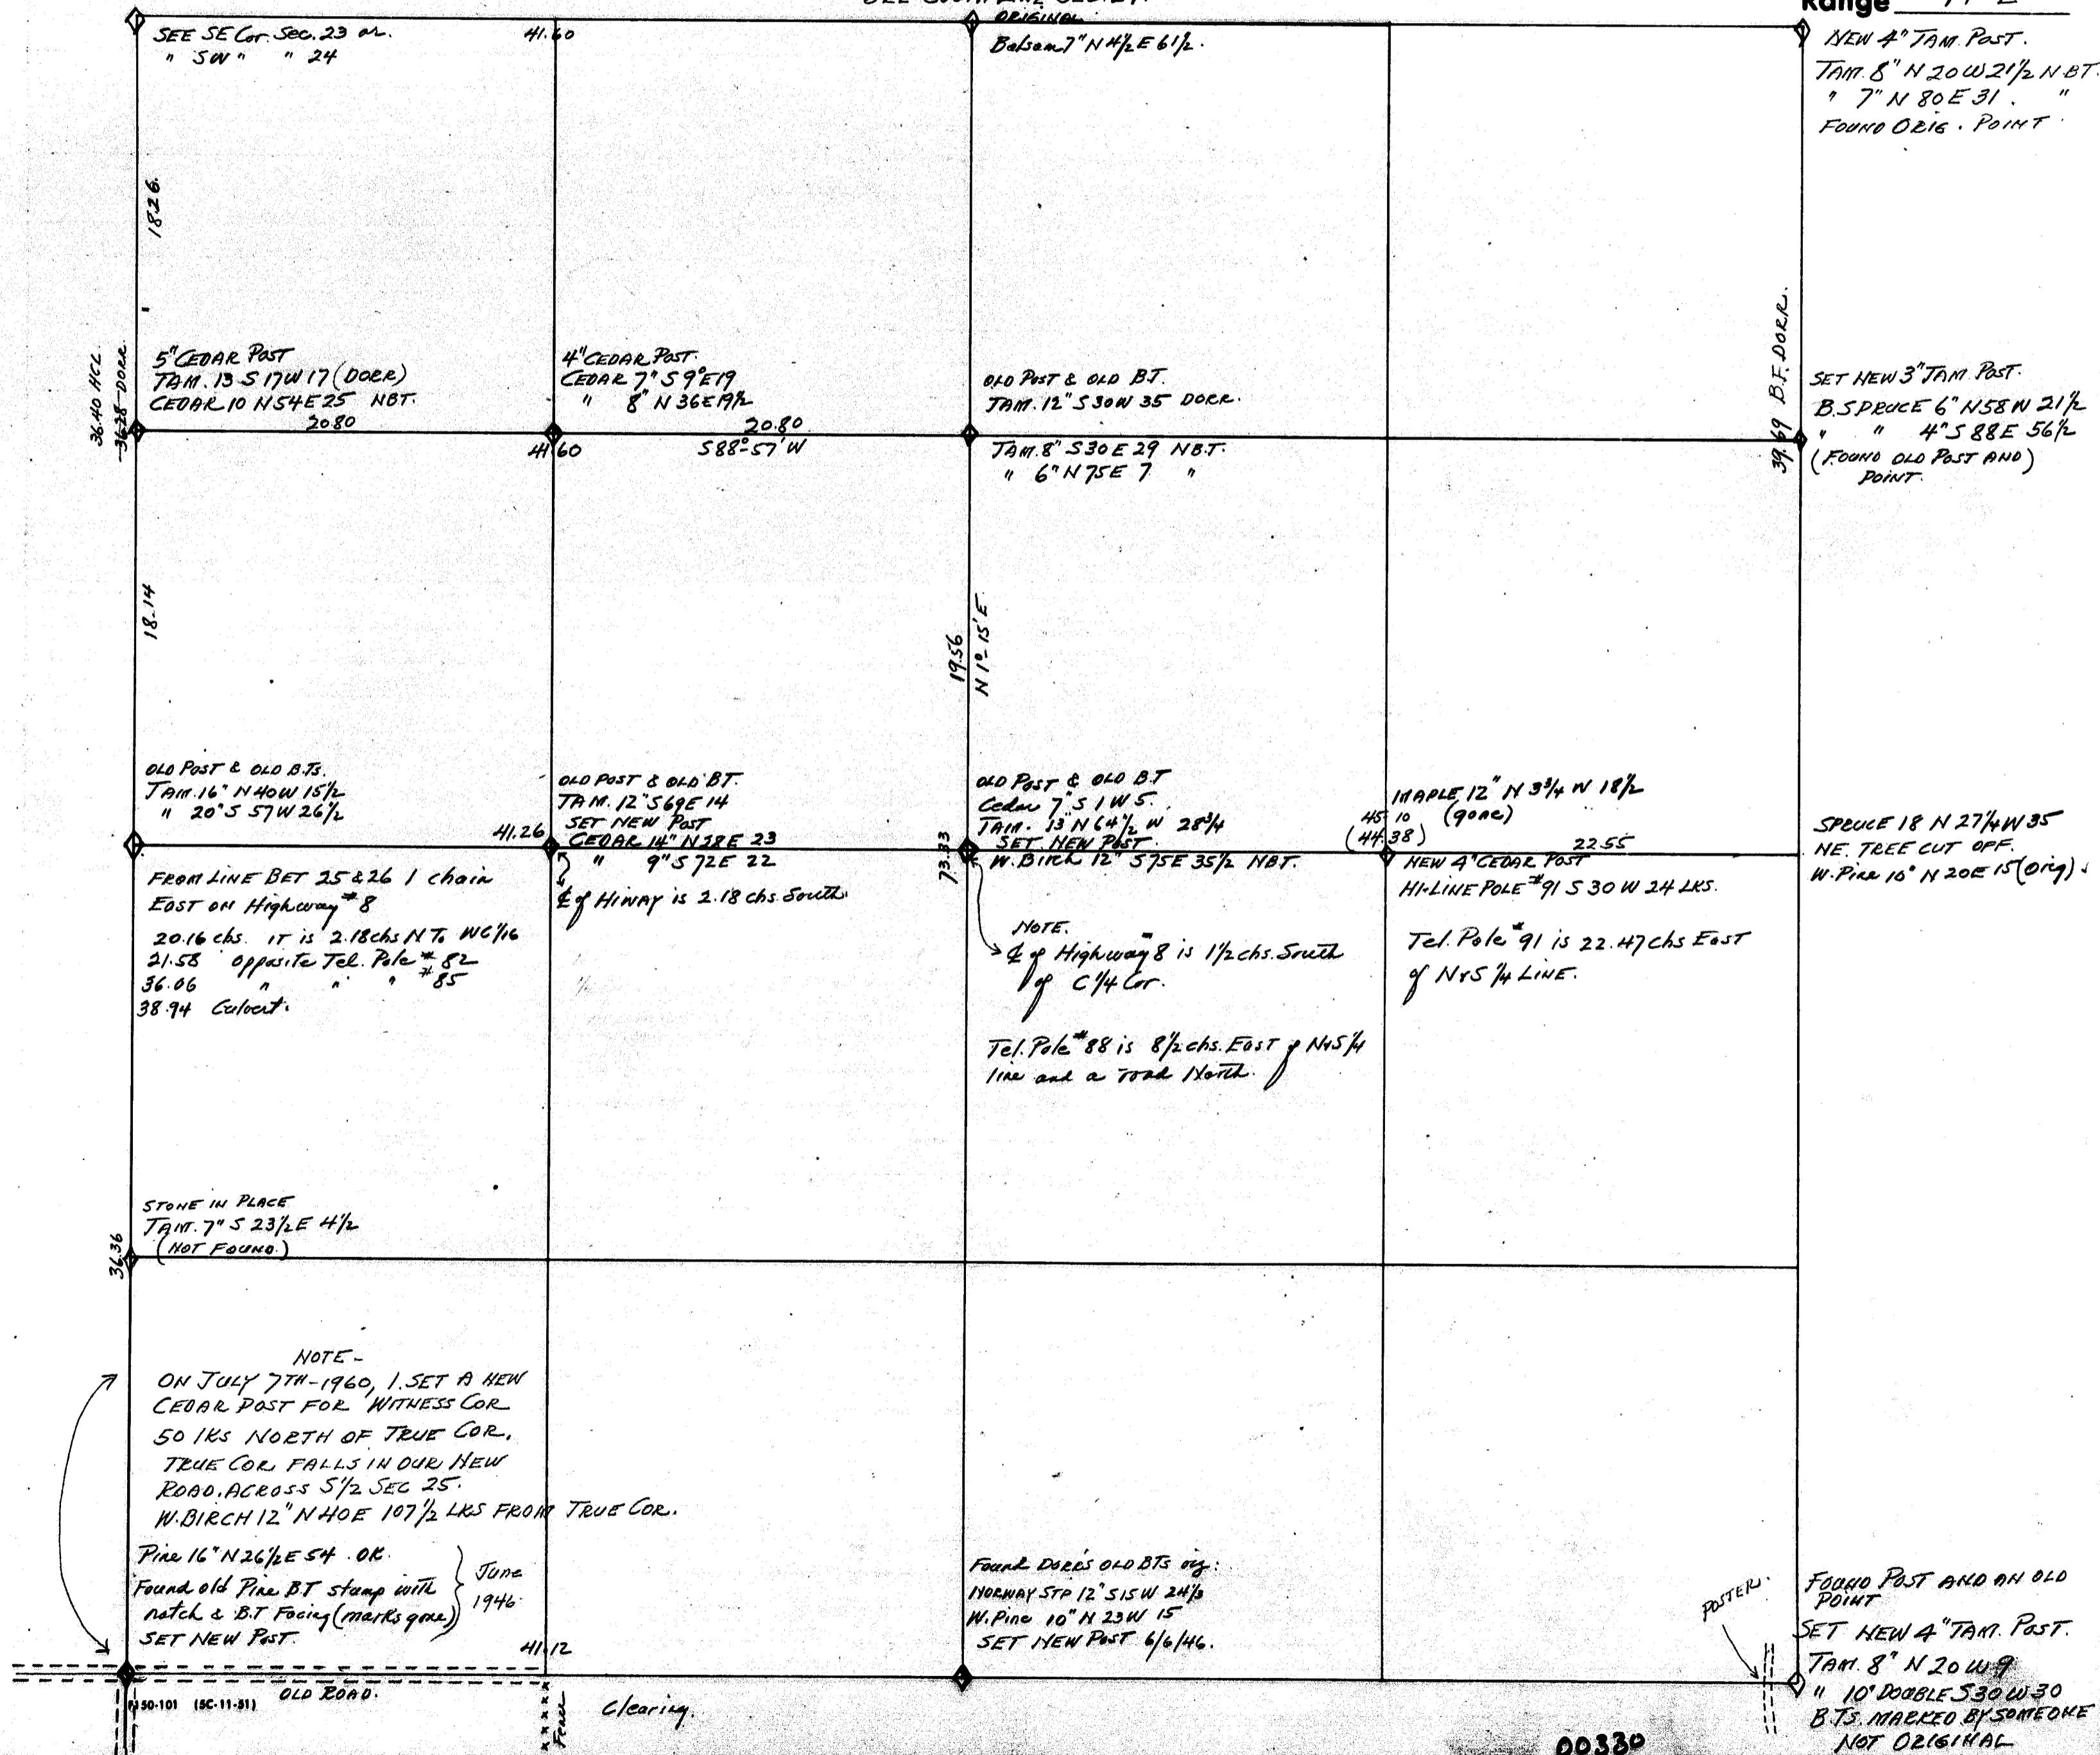 Range
ORIGINAL
SEE SE Cor. Sec. 23 or.
" SW " " 24
41.60
Balsam 7" N 4½ E 61½.
NEW 4" TAM. POST.
TAM. 8" N 20 W 21½ N BT.
" 7" N 80 E 31. "
FOUND ORIG. POINT.
18.26
36.40 HCL.
36.28 DORR
5" CEDAR POST
TAM. 13 S 17 W 17 (DORR)
CEDAR 10 N 54 E 25 NBT.
20.80
4" CEDAR POST.
CEDAR 7" S 9° E 19
" 8" N 36 E 19½
20.80
41.60
S 88°-57' W
OLD POST & OLD B.T.
TAM. 12" S 30 W 35 DORR.
TAM. 8" S 30 E 29 NB.T.
" 6" N 75 E 7 "
39.69 B.F. DORR.
SET NEW 3" TAM. POST.
B. SPRUCE 6" N 58 W 21½
" " 4" S 88 E 56½
(FOUND OLD POST AND)
POINT.
18.14
19.56
N 1°-15' E.
OLD POST & OLD B.Ts.
TAM. 16" N 40 W 15½
" 20" S 57 W 26½
41.26
OLD POST & OLD BT.
TAM. 12" S 69 E 14
SET NEW POST
CEDAR 14" N 28 E 23
" 9" S 72 E 22
℄ of HIWAY is 2.18 chs. South.
OLD POST & OLD B.T
Cedar 7" S 1 W 5.
TAM. 13" N 64½ W 28¾
SET NEW POST.
W. Birch 12" S 75 E 35½ NBT.
73.33
MAPLE 12" N 3¾ W 18½
(gone)
45.10
(44.38)
22.55
NEW 4" CEDAR POST
HI-LINE POLE #91 S 30 W 24 LKS.
Tel. Pole #91 is 22.47 chs East
of N&S ¼ LINE.
SPRUCE 18 N 27¼ W 35
NE. TREE CUT OFF.
W. Pine 10" N 20 E 15 (Orig).
FROM LINE BET 25 & 26 1 chain
EAST ON Highway #8
20.16 chs. IT is 2.18 chs N To WC 1/16
21.58 opposite Tel. Pole #82
36.06 " " " #85
38.94 Culvert.
NOTE.
℄ of Highway 8 is 1½ chs. South
of C ¼ Cor.
Tel. Pole #88 is 8½ chs. East of N&S ¼
line and a road North.
STONE IN PLACE
TAM. 7" S 23½ E 4½
(NOT FOUND.)
36.36
NOTE-
ON JULY 7TH-1960, I SET A NEW
CEDAR POST FOR WITNESS COR
50 lKS NORTH OF TRUE COR.
TRUE COR FALLS IN OUR NEW
ROAD. ACROSS S½ SEC 25.
W. BIRCH 12" N 40 E 107½ LKS FROM TRUE COR.
Pine 16" N 26½ E 54 . OK.
Found old Pine BT stump with
notch & B.T Facing (marks gone)
SET NEW POST.
June
1946
41.12
Found DORR'S OLD BTs viz:
NORWAY STP 12" S 15 W 24⅓
W. Pine 10" N 23 W 15
SET NEW POST 6/6/46.
POSTER.
FOUND POST AND AN OLD
POINT
SET NEW 4" TAM. POST.
TAM. 8" N 20 W 9
" 10" DOUBLE S 30 W 30
B.Ts. MARKED BY SOMEONE
NOT ORIGINAL
50-101 (5C-11-51)
OLD ROAD.
Fence
Clearing.
00330